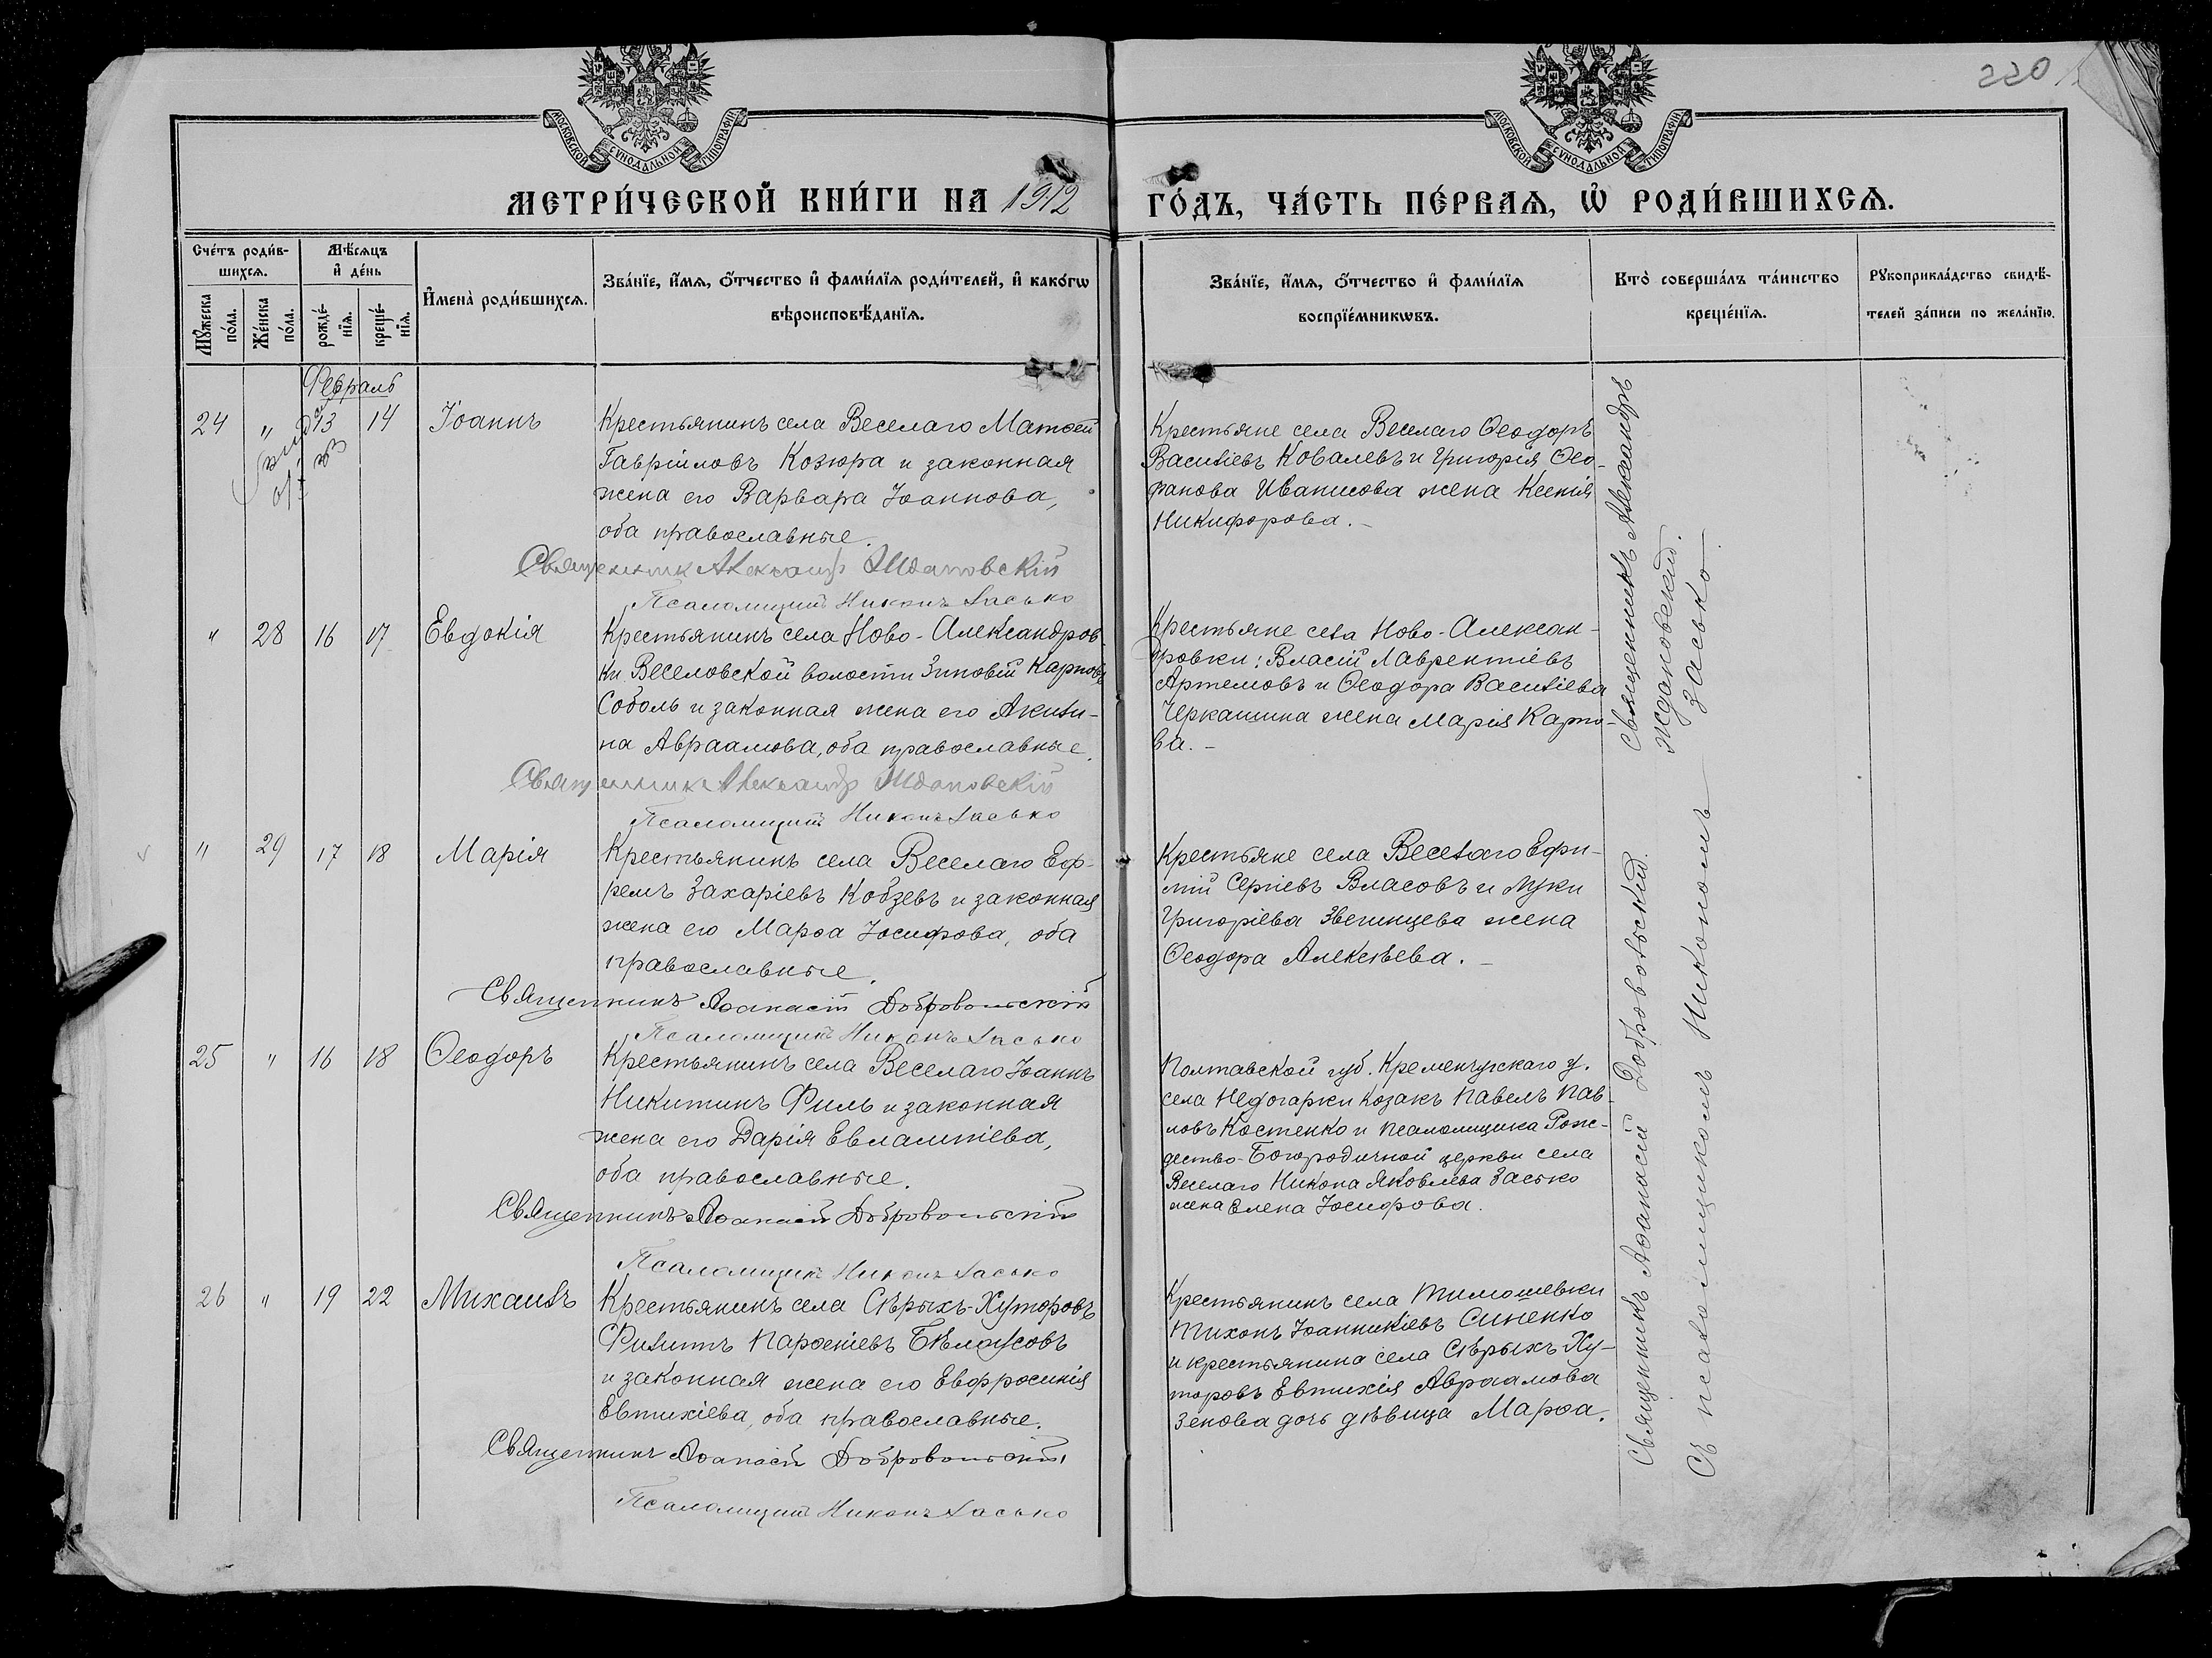 220
МОСКОВСКОЙ СѴНОДАЛЬНОЙ ТИПОГРАФІИ
МОСКОВСКОЙ СѴНОДАЛЬНОЙ ТИПОГРАФІИ
МЕТРИ́ЧЕСКОЙ КНИ́ГИ НА 1912 ГО́ДЪ, ЧА́СТЬ ПЕ́РВАѦ, Ѡ҆ РОДИ́ВШИХСѦ.
Сче́тъ роди́в-
шихсѧ.
Мꙋ́жеска
по́ла.
Же́нска
по́ла.
Мѣ́сѧцъ
и҆ де́нь
рожде́-
нїѧ.
креще́-
нїѧ.
И҆мена̀ роди́вшихсѧ.
Зва́нїе, и҆́мѧ, ѻ҆́тчество и҆ фами́лїѧ роди́телей, и҆ како́гѡ
вѣроисповѣ́данїѧ.
Зва́нїе, и҆́мѧ, ѻ҆́тчество и҆ фами́лїѧ
воспрїе́мникѡвъ.
Кто̀ соверша́лъ та́инство
креще́нїѧ.
Рꙋкоприкла́дство свидѣ́-
телей за́писи по жела́нїю.
Февраль
24 " 13 14 Іоаннъ
Крестьянинъ села Веселаго Матѳей
Гавріиловъ Козюра и законная
жена его Варвара Іоаннова,
оба православные.
Священник Александр Ждановскій
Псаломщикъ Никонъ Засько
Крестьяне села Веселаго Ѳеодоръ
Василіевъ Ковалевъ и Григорія Ѳео-
фанова Иванисова жена Ксенія
Никифорова. -
" 28 16 17 Евдокія
Крестьянинъ села Ново-Александров-
ки Веселовской волости Зиновій Карповъ
Соболь и законная жена его Акили-
на Авраамова, оба православные.
Священник Александр Ждановскій
Псаломщикъ Никонъ Засько
Крестьяне села Ново-Алексан-
дровки: Власій Лаврентіевъ
Артемовъ и Ѳеодора Василіева
Черкашина жена Марія Карпо-
ва. -
" 29 17 18 Марія
Крестьянинъ села Веселаго Еф-
ремъ Захаріевъ Кобзевъ и законная
жена его Марѳа Іосифова, оба
православные.
Священникъ Аѳанасій Добровольскій
Псаломщикъ Никонъ Засько
Крестьяне села Веселаго Ефи-
мій Сергіевъ Власовъ и Луки
Григоріева Звегинцева жена
Ѳеодора Алексѣева. -
25 " 16 18 Ѳеодоръ
Крестьянинъ села Веселаго Іоаннъ
Никитинъ Филь и законная
жена его Дарія Евлампіева,
оба православные.
Священникъ Аѳанасій Добровольскій
Псаломщикъ Никонъ Засько
Полтавской губ. Кременчугскаго у.
села Недогарки козакъ Павелъ Пав-
ловъ Костенко и псаломщика Рож-
дество-Богородичной церкви села
Веселаго Никона Яковлева Засько
жена Елена Іосифова.
26 " 19 22 Михаилъ
Крестьянинъ села Сѣрыхъ-Хуторовъ
Филиппъ Парѳеніевъ Бѣлоусовъ
и законная жена его Евфросинія
Евтихіева, оба православные.
Священникъ Аѳанасій Добровольскій
Псаломщикъ Никонъ Засько
Крестьянинъ села Тимошевки
Тихонъ Іоанникіевъ Синенко
и крестьянина села Сѣрыхъ Ху-
торовъ Евтихія Авраамова
Зенова дочь дѣвица Марѳа.
Священникъ Александръ
Ждановскій.
Священникъ Аѳанасій Добровольскій.
Съ псаломщикомъ Никономъ Засько.